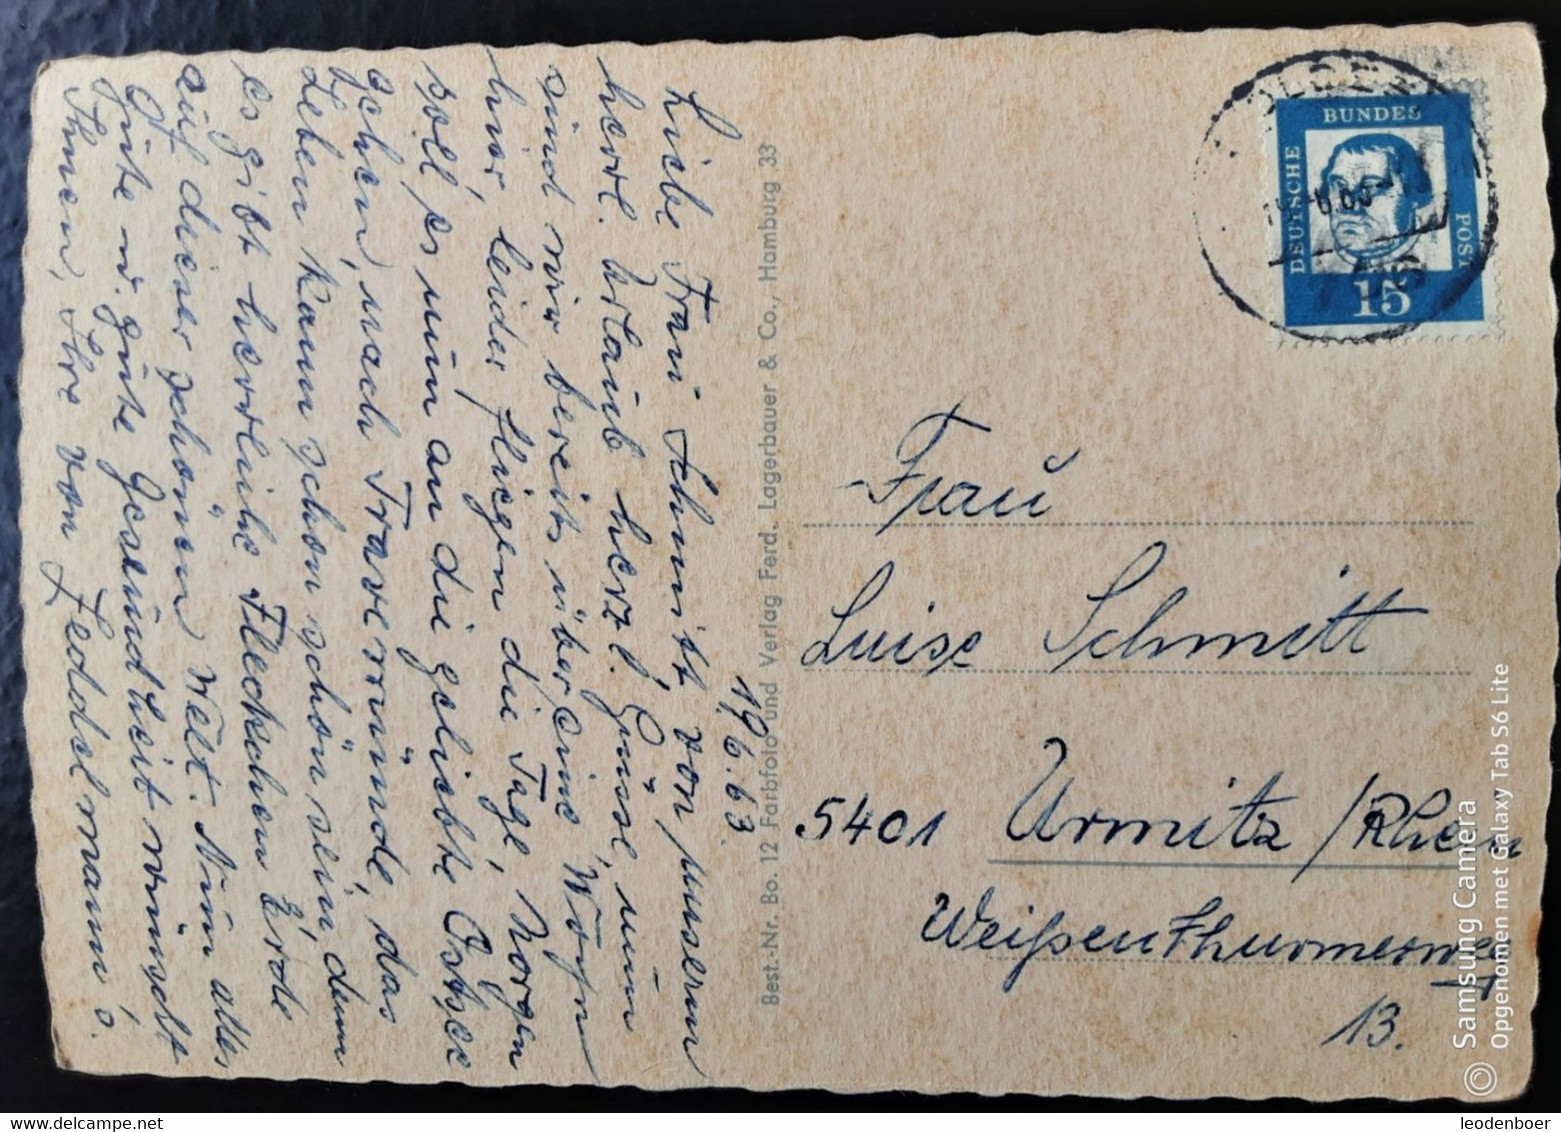 19.6.63
Liebe Frau Schmitt von unserm
herrl. Urlaub herzl. Grüsse, nun
sind wir bereits über eine Woche
hier, leider fliegen die Tage, Morgen
soll es nun an die geliebte Ostsee
gehen, nach Travemünde, das
Leben kann schon schön sein, denn
es gibt herrliche Fleckchen Erde
auf dieser schönen Welt. Nun alles
Gute u. gute Gesundheit wünscht
Ihnen, Ihre von Zeddelmann's.
Best.-Nr. Bo. 12 Farbfoto und Verlag Ferd. Lagerbauer & Co., Hamburg 33
DEUTSCHE BUNDES POST
15
Frau
Luise Schmitt
5401 Urmitz/Rhein
Weißenthurmerweg
13.
© Samsung Camera
Opgenomen met Galaxy Tab S6 Lite
leodenboer